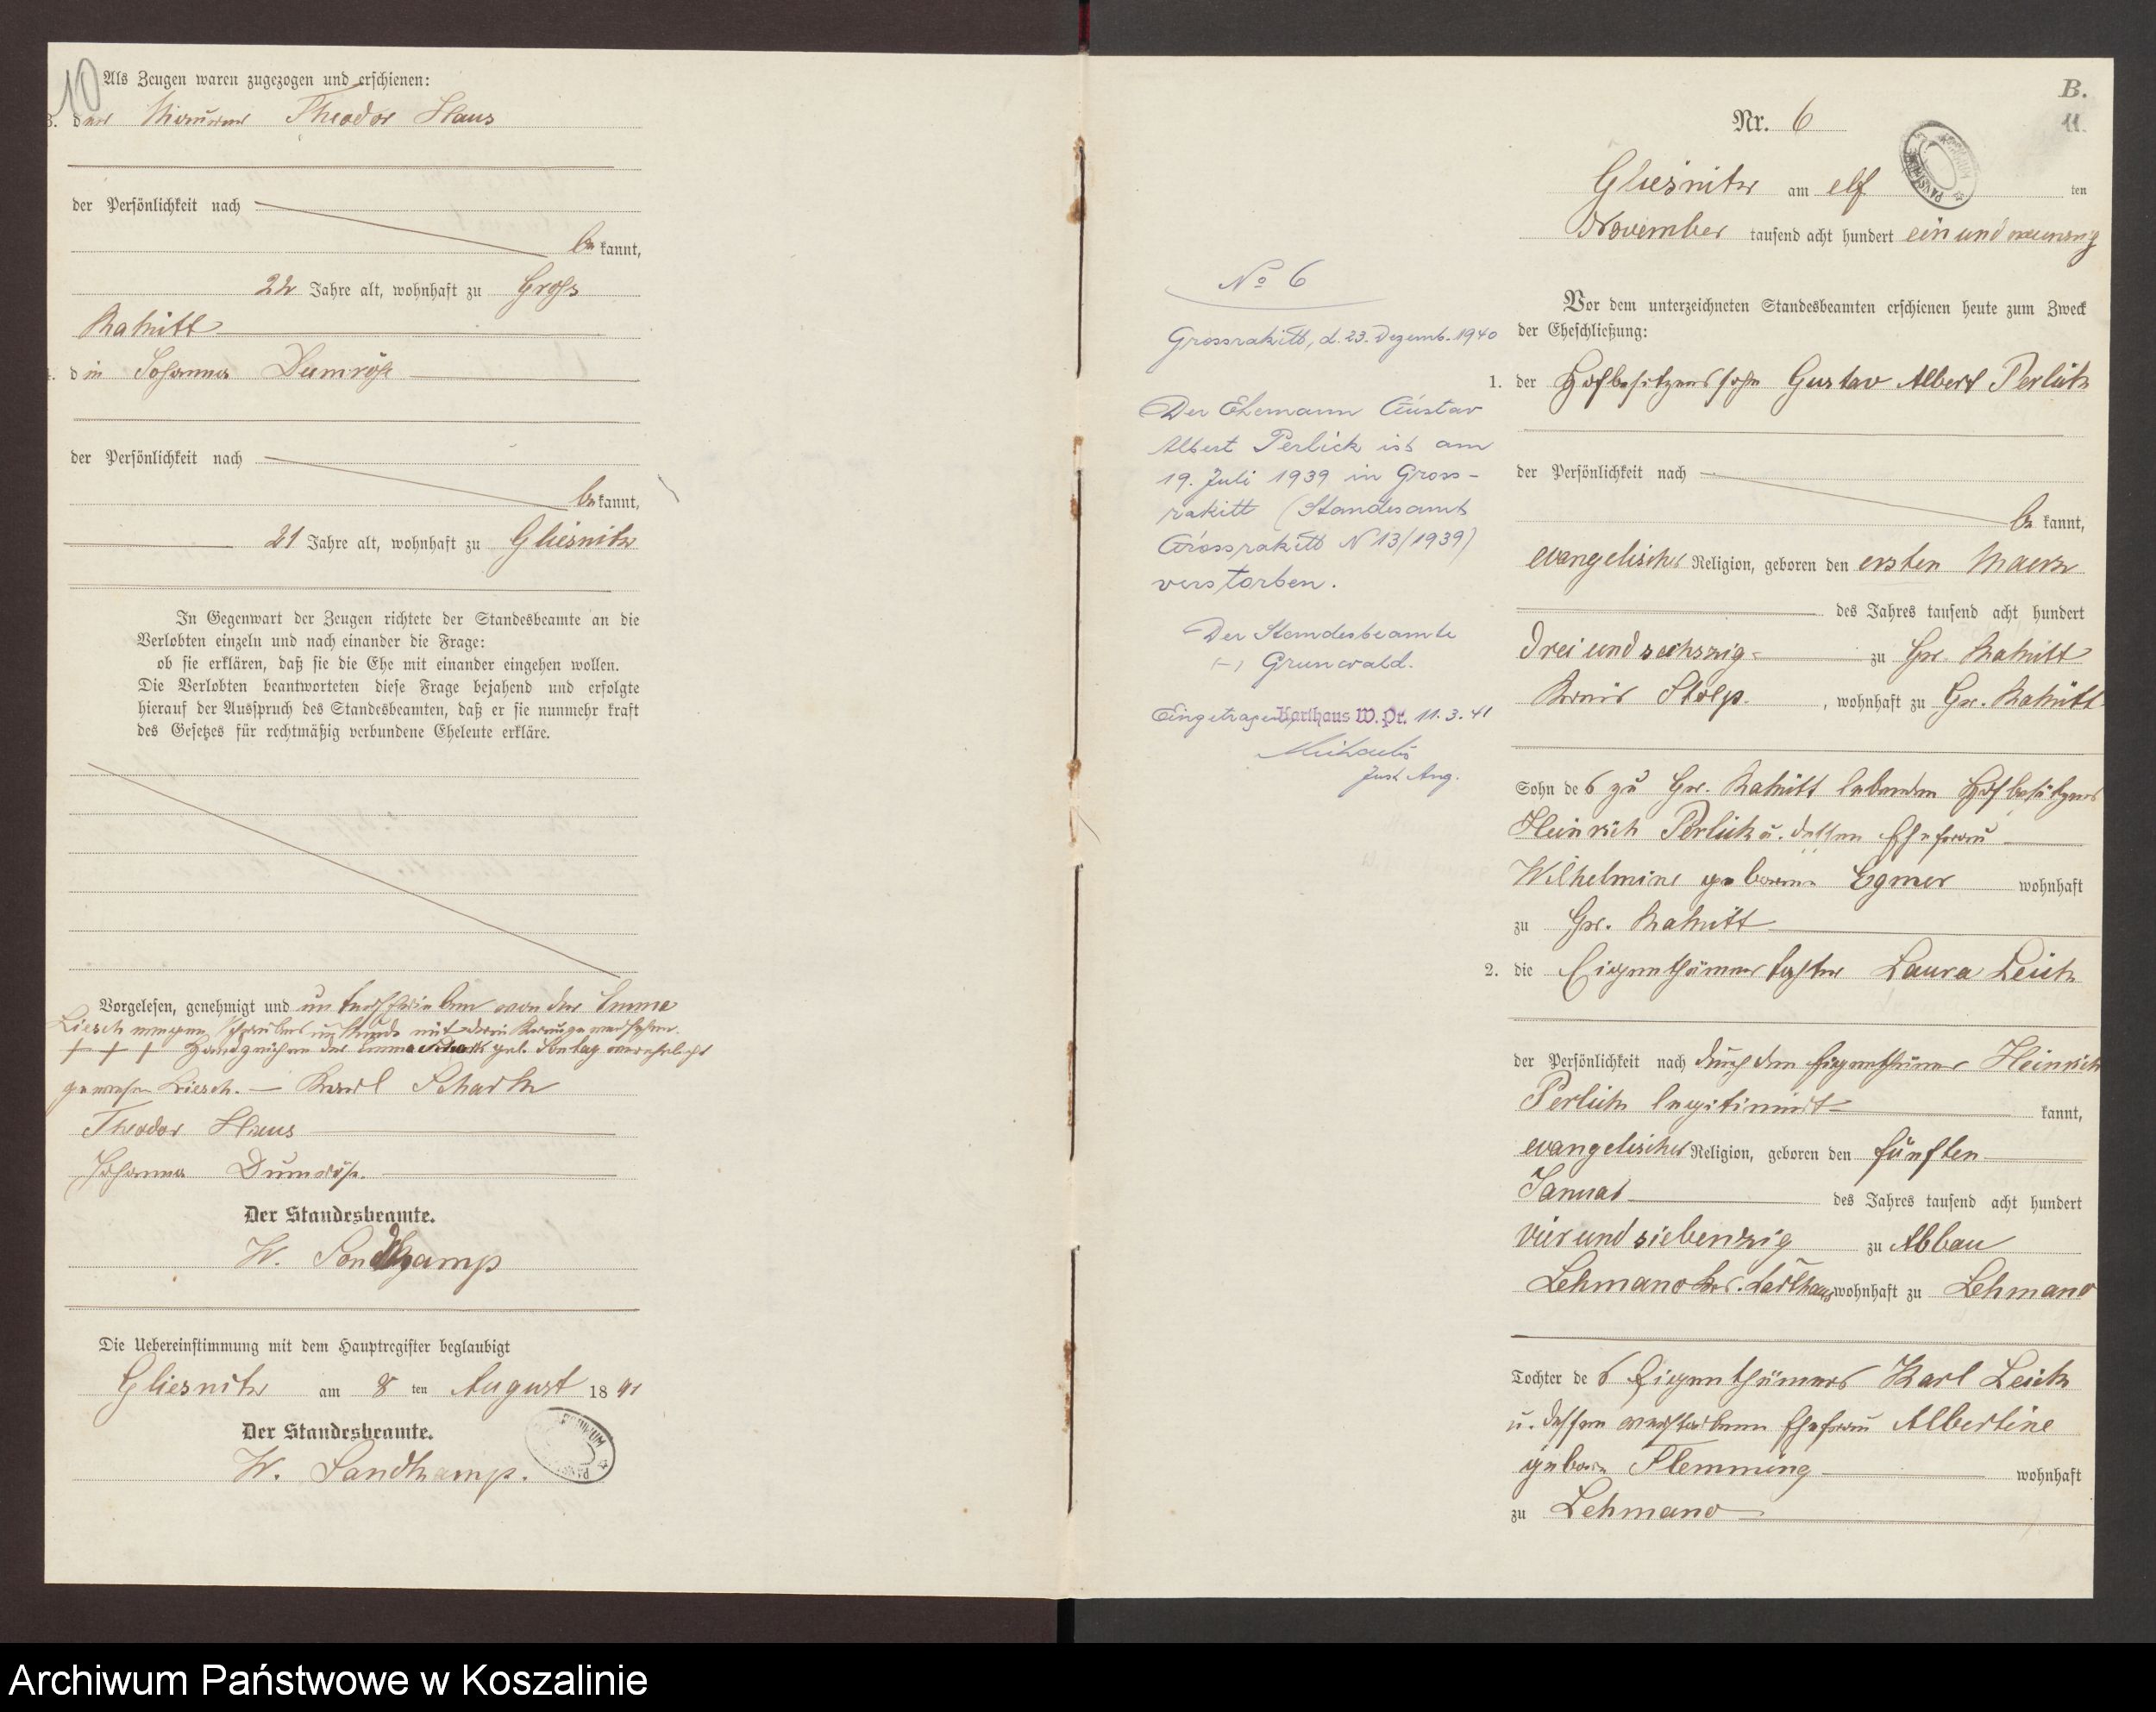 10
Als Zeugen waren zugezogen und erschienen:
3. der Maurer Theodor Haus
der Persönlichkeit nach
be kannt,
22 Jahre alt, wohnhaft zu Gross
Rakitt
4. die Johanna Dumröse
der Persönlichkeit nach
be kannt,
21 Jahre alt, wohnhaft zu Gliesnitz
In Gegenwart der Zeugen richtete der Standesbeamte an die
Verlobten einzeln und nach einander die Frage:
ob sie erklären, daß sie die Ehe mit einander eingehen wollen.
Die Verlobten beantworteten diese Frage bejahend und erfolgte
hierauf der Ausspruch des Standesbeamten, daß er sie nunmehr kraft
des Gesetzes für rechtmäßig verbundene Eheleute erkläre.
Vorgelesen, genehmigt und unterschrieben von der Emma
Liesch wegen Schreibens unkunde mit deren Kreuze versehen.
+ + + Handzeichen der Emma Schark geb. Sontag verehelicht
gewesene Liesch. — Karl Schark
Theodor Haus
Johanna Dumröse.
Der Standesbeamte.
W. Sandkamp
Die Uebereinstimmung mit dem Hauptregister beglaubigt
Gliesnitz am 8 ten August 18 91
Der Standesbeamte.
W. Sandkamp.
No 6
Grossrakitt, d. 23. Dezemb. 1940
Der Ehemann Gustav
Albert Perlick ist am
19. Juli 1939 in Gross-
rakitt (Standesamt
Grossrakitt N 13/1939)
verstorben.
Der Standesbeamte
(-) Grunwald.
Eingetragen, Karthaus W. Pr. 11. 3. 41
Just Ang.
B.
11.
Nr. 6
Gliesnitz am elf ten
November tausend acht hundert ein und neunzig
Vor dem unterzeichneten Standesbeamten erschienen heute zum Zweck
der Eheschließung:
1. der Hofbesitzerssohn Gustav Albert Perlick
der Persönlichkeit nach
be kannt,
evangelischer Religion, geboren den ersten Maerz
des Jahres tausend acht hundert
drei und sechszig zu Gr. Rakitt
Kreis Stolp. , wohnhaft zu Gr. Rakitt
Sohn des zu Gr. Rakitt lebenden Hofbesitzers
Heinrich Perlick u. dessen Ehefrau
Wilhelmine geborene Egmer wohnhaft
zu Gr. Rakitt
2. die Eigenthümertochter Laura Leick
der Persönlichkeit nach durch den Eigenthümer Heinrich
Perlick legitimirt kannt,
evangelischer Religion, geboren den fünften
Januar des Jahres tausend acht hundert
vier und siebenzig zu Abbau
Lehmano Kr. Carthaus wohnhaft zu Lehmano
Tochter des Eigenthümers Karl Leick
u. dessen verstorbenen Ehefrau Albertine
geborene Flemming wohnhaft
zu Lehmano
Archiwum Państwowe w Koszalinie